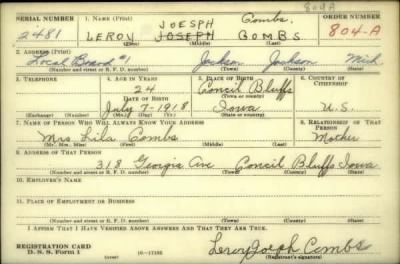 804A
SERIAL NUMBER 1. NAME (Print) ORDER NUMBER
JOESPH Combs.
2481 LEROY JOSEPH COMBS 804-A
(First) (Middle) (Last)
2. ADDRESS (Print)
Local Board #1 Jackson Jackson Mich
(Number and street or R. F. D. number) (Town) (County) (State)
3. TELEPHONE 4. AGE IN YEARS 5. PLACE OF BIRTH 6. COUNTRY OF CITIZENSHIP
24 Concil Bluffs
DATE OF BIRTH (Town or county)
July 7-1918 Iowa U.S.
(Exchange) (Number) (Mo.) (Day) (Yr.) (State or country)
7. NAME OF PERSON WHO WILL ALWAYS KNOW YOUR ADDRESS 8. RELATIONSHIP OF THAT PERSON
Mrs. Lila Combs Mother
(Mr., Mrs., Miss) (First) (Middle) (Last)
9. ADDRESS OF THAT PERSON
318 Georgia Ave Concil Bluffs Iowa
(Number and street or R. F. D. number) (Town) (County) (State)
10. EMPLOYER'S NAME
11. PLACE OF EMPLOYMENT OR BUSINESS
(Number and street or R. F. D. number) (Town) (County) (State)
I AFFIRM THAT I HAVE VERIFIED ABOVE ANSWERS AND THAT THEY ARE TRUE.
REGISTRATION CARD
D. S. S. Form 1 16-17105 Leroy Joeph Combs
(Registrant's signature)